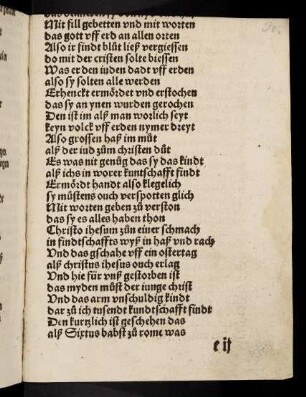 Mit sill gebetten vnd mit worten
das gott vff erd an allen orten
Also ir sindt blůt ließ vergiessen
do mit der cristen solte biessen
Was er den iuden dadt vff erden
also sy solten alle werden
Erhenckt ermördet vnd erstochen
das sy an ynen wurden gerochen
Den ist im alß man worlich seyt
keyn volck vff erden nymer dreyt
Also grossen haß im můt
alß der iud zům christen důt
Es was nit genůg das sy das kindt
alß ichs in worer kuntschafft findt
Ermördt handt also klegelich
sy můstens ouch verspotten glich
Mit worten geben zů verston
das sy es alles haben thon
Christo ihesum zůn einer schmach
in findtschaffts wyß in haß vnd rach
Vnd das gschahe vff ein ostertag
alß christus ihesus ouch erlag
Vnd hie für vnß gestorben ist
das myden můst der iunge christ
Vnd das arm vnschuldig kindt
dar zů ich tusendt kundtschafft findt
Den kurzlich ist geschehen das
alß Sixtus babst zů rome was
e ij